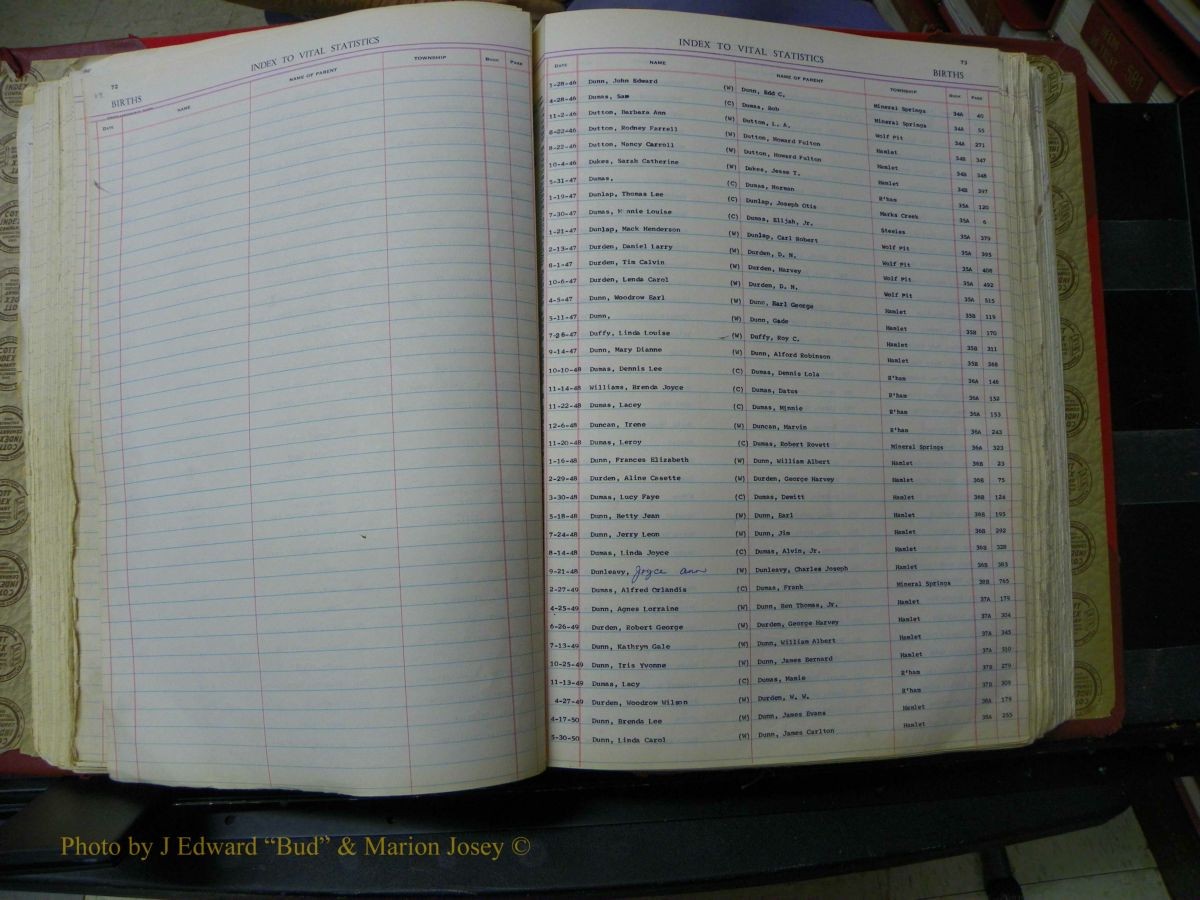 72
BIRTHS
INDEX TO VITAL STATISTICS
DATE NAME NAME OF PARENT TOWNSHIP BOOK PAGE
INDEX TO VITAL STATISTICS
73
BIRTHS
DATE NAME NAME OF PARENT TOWNSHIP BOOK PAGE
1-28-46 Dunn, John Edward (W) Dunn, Edd C. Mineral Springs 34A 40
4-28-46 Dumas, Sam (C) Dumas, Bob Mineral Springs 34A 55
11-2-46 Dutton, Barbara Ann (W) Dutton, L. A. Wolf Pit 34A 271
8-22-46 Dutton, Rodney Farrell (W) Dutton, Howard Fulton Hamlet 34B 347
8-22-46 Dutton, Nancy Carroll (W) Dutton, Howard Fulton Hamlet 34B 348
10-4-46 Dukes, Sarah Catherine (W) Dukes, Jesse T. Hamlet 34B 397
5-31-47 Dumas, (C) Dumas, Norman R'ham 35A 120
1-19-47 Dunlap, Thomas Lee (C) Dunlap, Joseph Otis Marks Creek 35A 6
7-30-47 Dumas, Louise (C) Dumas, Elijah, Jr. Steeles 35A 379
1-21-47 Dunlap, Mack Henderson (W) Dunlap, Carl Robert Wolf Pit 35A 395
2-13-47 Durden, Daniel Larry (W) Durden, D. N. Wolf Pit 35A 408
8-1-47 Durden, Tim Calvin (W) Durden, Harvey Wolf Pit 35A 492
10-6-47 Durden, Lenda Carol (W) Durden, D. N. Wolf Pit 35A 515
4-5-47 Dunn, Woodrow Earl (W) Dunn, Earl George Hamlet 35B 119
5-11-47 Dunn, (W) Dunn, Gade Hamlet 35B 170
7-28-47 Duffy, Linda Louise (W) Duffy, Roy C. Hamlet 35B 311
9-14-47 Dunn, Mary Dianne (W) Dunn, Alford Robinson Hamlet 35B 368
10-10-48 Dumas, Dennis Lee (C) Dumas, Dennis Lola R'ham 36A 148
11-14-48 Williams, Brenda Joyce (C) Dumas, Datus R'ham 36A 152
11-22-48 Dumas, Lacey (C) Dumas, Minnie R'ham 36A 153
12-6-48 Duncan, Irene (W) Duncan, Marvin R'ham 36A 243
11-20-48 Dumas, Leroy (C) Dumas, Robert Rovett Mineral Springs 36A 323
1-16-48 Dunn, Frances Elizabeth (W) Dunn, William Albert Hamlet 36B 23
2-29-48 Durden, Aline Casette (W) Durden, George Harvey Hamlet 36B 75
3-30-48 Dumas, Lucy Faye (C) Dumas, Dewitt Hamlet 36B 124
5-18-48 Dunn, Betty Jean (W) Dunn, Earl Hamlet 36B 195
7-24-48 Dunn, Jerry Leon (W) Dunn, Jim Hamlet 36B 292
8-14-48 Dumas, Linda Joyce (C) Dumas, Alvin, Jr. Hamlet 36B 328
9-21-48 Dunleavy, Joyce Ann (W) Dunleavy, Charles Joseph Hamlet 36B 383
2-27-49 Dumas, Alfred Orlandis (C) Dumas, Frank Mineral Springs 38B 765
4-25-49 Dunn, Agnes Lorraine (W) Dunn, Ben Thomas, Jr. Hamlet 37A 179
6-26-49 Durden, Robert George (W) Durden, George Harvey Hamlet 37A 304
7-13-49 Dunn, Kathryn Gale (W) Dunn, William Albert Hamlet 37A 345
10-25-49 Dunn, Iris Yvonne (W) Dunn, James Bernard Hamlet 37A 510
11-13-49 Dumas, Lacy (C) Dumas, Mamie R'ham 37B 279
4-27-49 Durden, Woodrow Wilson (W) Durden, W. W. R'ham 37B 309
4-17-50 Dunn, Brenda Lee (W) Dunn, James Evans Hamlet 38A 179
5-30-50 Dunn, Linda Carol (W) Dunn, James Carlton Hamlet 38A 255
Photo by J Edward “Bud” & Marion Josey ©